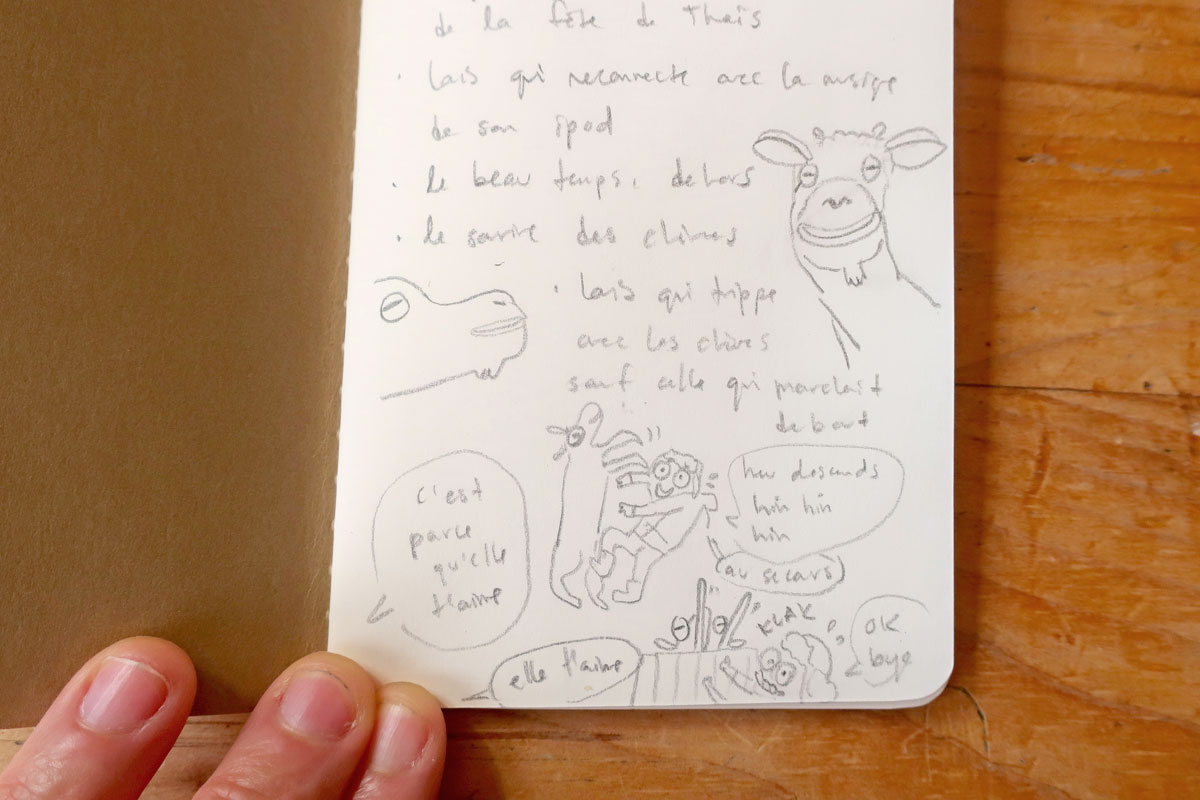 de la fête de Thaïs
· Laïs qui reconnecte avec la musique
de son ipod
· le beau temps, dehors
· le sourire des chèvres
· Laïs qui trippe
avec les chèvres
sauf celle qui marchait
debout
heu descends
hin hin
hin
c'est
parce
qu'elle
t'aime
au secours
KLAK
OK
bye
elle t'aime